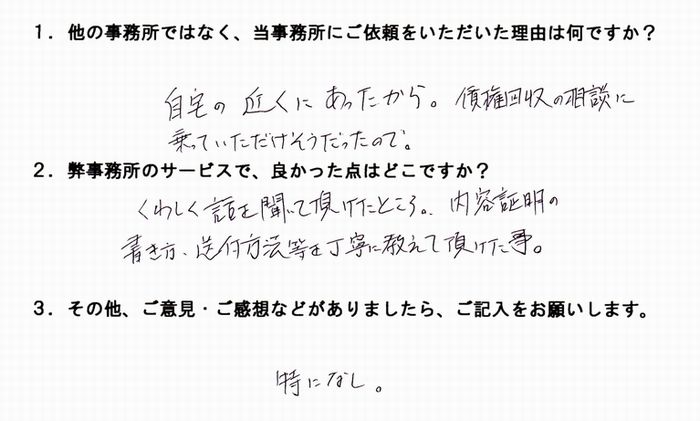 1．他の事務所ではなく、当事務所にご依頼をいただいた理由は何ですか？
自宅の近くにあったから。債権回収の相談に
乗っていただけそうだったので。
2．弊事務所のサービスで、良かった点はどこですか？
くわしく話を聞いて頂けたところ。内容証明の
書き方、送付方法等を丁寧に教えて頂けた事。
3．その他、ご意見・ご感想などがありましたら、ご記入をお願いします。
特になし。